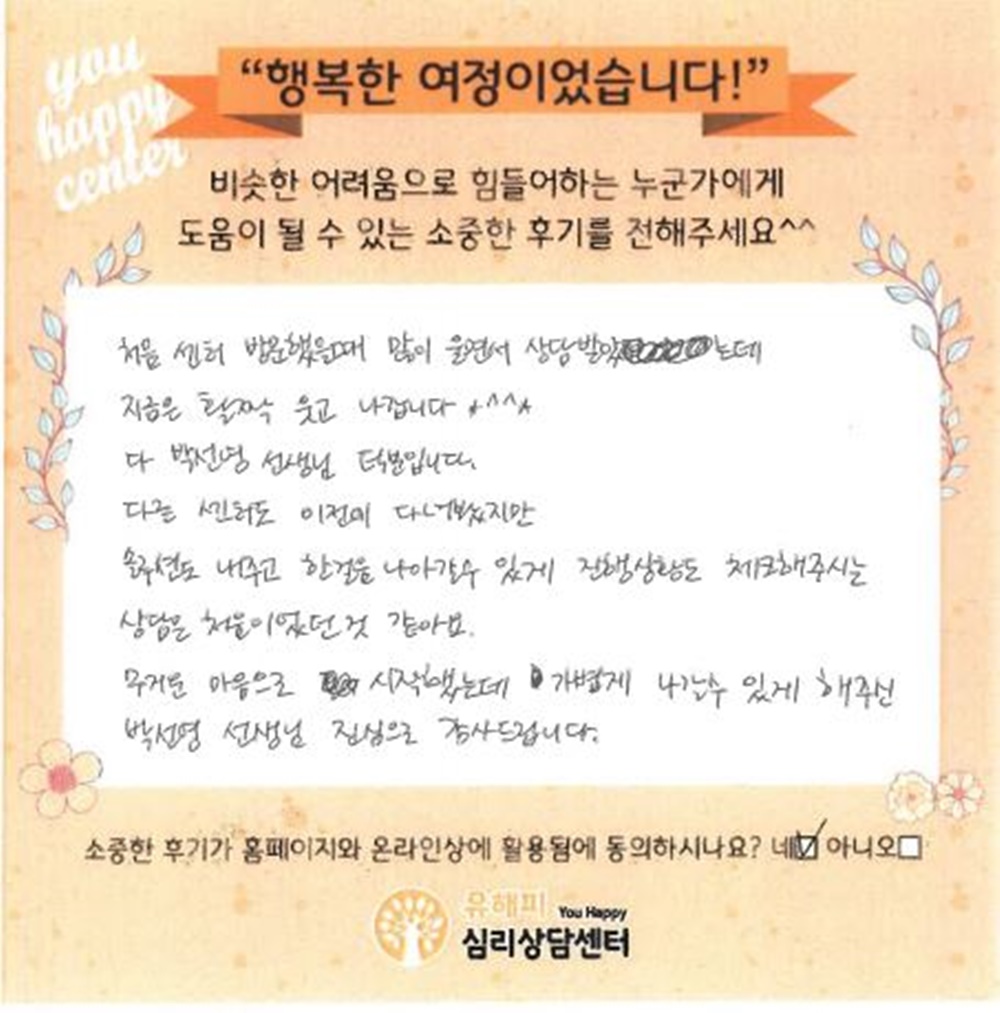 you
happy
center
“행복한 여정이었습니다!”
비슷한 어려움으로 힘들어하는 누군가에게
도움이 될 수 있는 소중한 후기를 전해주세요^^
처음 센터 방문했을때 많이 울면서 상담받았는데
지금은 활짝 웃고 나갑니다 *^^*
다 박선영 선생님 덕분입니다.
다른 센터도 이전에 다녀봤지만
솔루션도 내주고 한걸음 나아갈수 있게 진행상황도 체크해주시는
상담은 처음이었던것 같아요.
무거운 마음으로 시작했는데 가볍게 나갈수 있게 해주신
박선영 선생님 진심으로 감사드립니다.
소중한 후기가 홈페이지와 온라인상에 활용됨에 동의하시나요? 네☑ 아니오☐
유해피 You Happy
심리상담센터